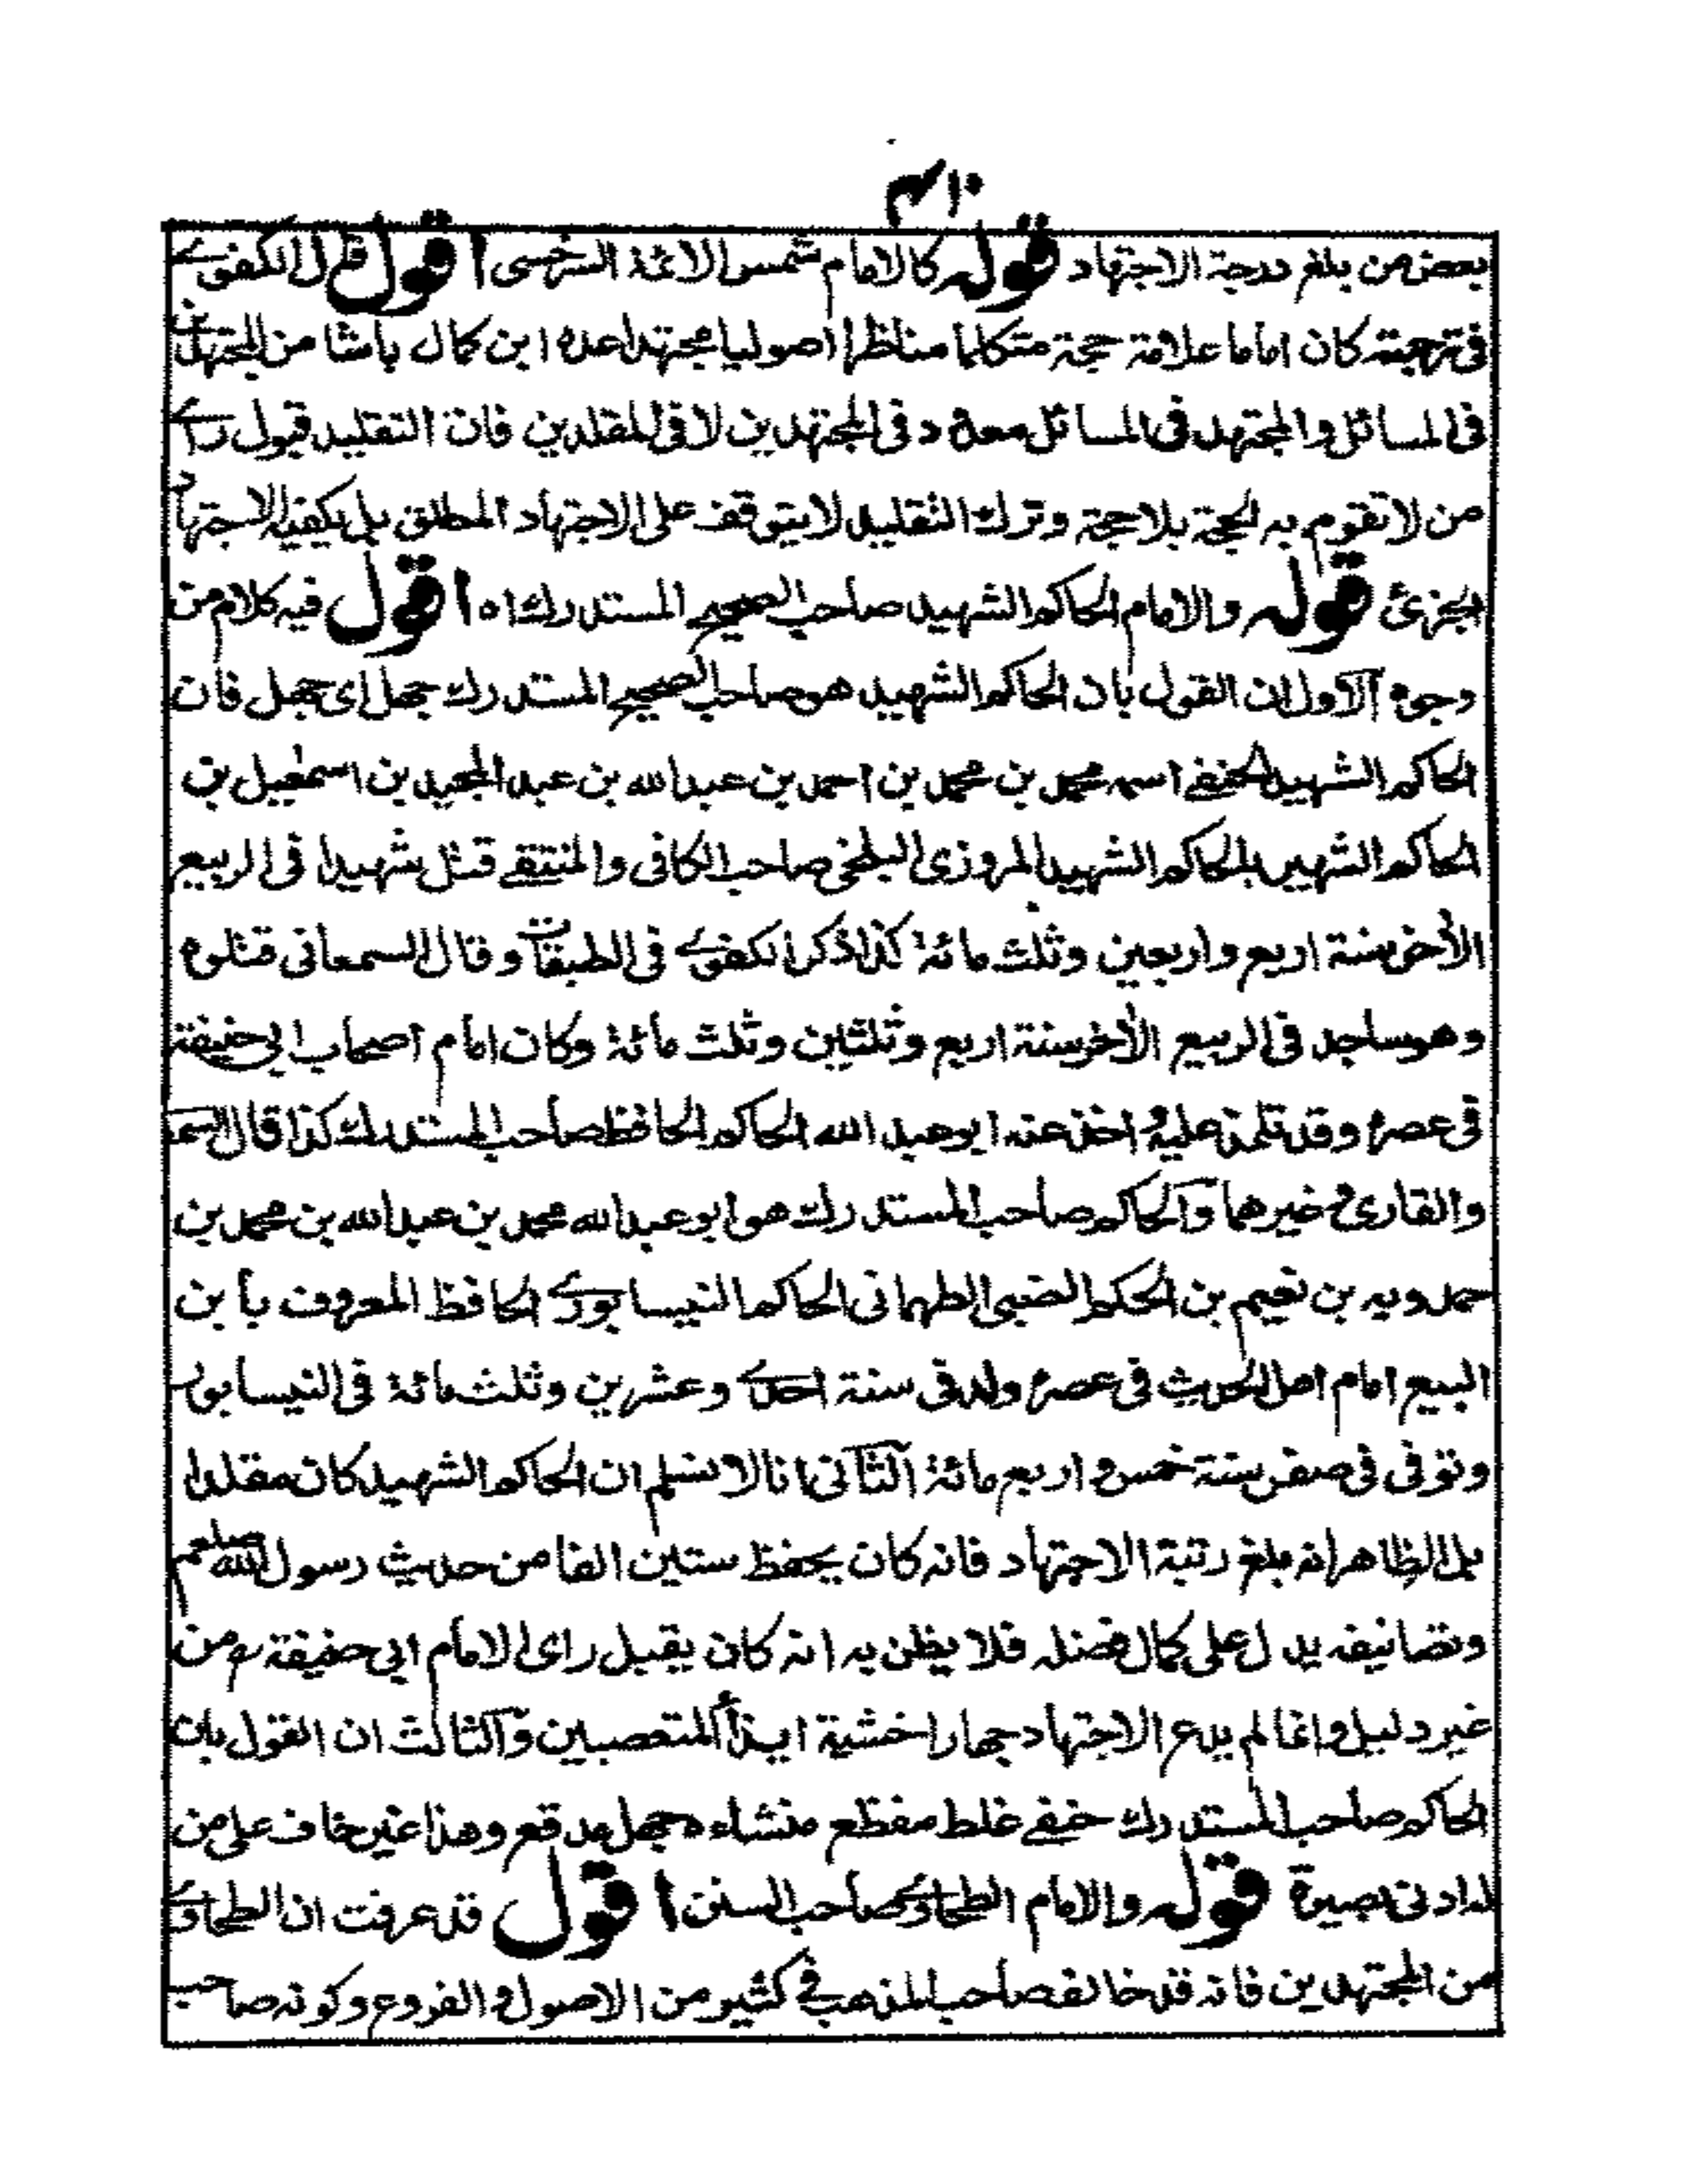 ٣١٠
بعض من بلغ درجة الاجتهاد قوله كالامام شمس الائمة السرخسى اقول قال الكفوى
فى ترجمته كان اماما علامة حجة متكلما مناظرا اصوليا مجتهدا عده ابن كمال باشا من المجتهدين
فى المسائل والمجتهد فى المسائل معدود فى المجتهدين لا فى المقلدين فان التقليد قبول راى
من لا تقوم به الحجة بلا حجة وترك التقليد لا يتوقف على الاجتهاد المطلق بل يكفيه الاجتهاد
الجزئى قوله والامام الحاكم الشهيد صاحب الصحيح المستدرك اه اقول فيه كلام من
وجوه الاول ان القول بان الحاكم الشهيد هو صاحب الصحيح المستدرك جهل اى جهل فان
الحاكم الشهيد الحنفى اسمه محمد بن محمد بن احمد بن عبد الله بن عبد المجيد بن اسمعيل بن
الحاكم الشهير بالحاكم الشهيد المروزى البلخى صاحب الكافى والمنتقى قتل شهيدا فى الربيع
الأخر سنة اربع واربعين وثلث مائة كذا ذكر الكفوى فى الطبقات وقال السمعانى قتلوه
وهو ساجد فى الربيع الأخر سنة اربع وثلثين وثلث مائة وكان امام اصحاب ابى حنيفة
فى عصره وقد تلمذ عليه واخذ عنه ابو عبد الله الحاكم الحافظ صاحب المستدرك كذا قال السمعا
والقارى وغيرهما والحاكم صاحب المستدرك هو ابو عبد الله محمد بن عبد الله بن محمد بن
حمدويه بن نعيم بن الحكم الضبى الطهمانى الحاكم النيسابورى الحافظ المعروف بابن
البيع امام اهل الحديث فى عصره ولد فى سنة احدى وعشرين وثلث مائة فى النيسابور
وتوفى فى صفر سنة خمس واربع مائة الثانى انا لا نسلم ان الحاكم الشهيد كان مقلدا
بل الظاهر انه بلغ رتبة الاجتهاد فانه كان يحفظ ستين الفا من حديث رسول الله صلعم
وتصانيفه يدل على كمال فضله فلا يظن به انه كان يقبل راى الامام ابى حنيفة رح من
غير دليل وانما لم يدع الاجتهاد جهارا خشية ايذأ المتعصبين والثالث ان القول بان
الحاكم صاحب المستدرك حنفى غلط مفظع منشاءه جهل مدقع وهذا غير خاف على من
له ادنى بصيرة قوله والامام الطحاوى صاحب السنن اقول قد عرفت ان الطحاوى
من المجتهدين فانه قد خالف صاحب المذهب فى كثير من الاصول والفروع وكونه صاحب